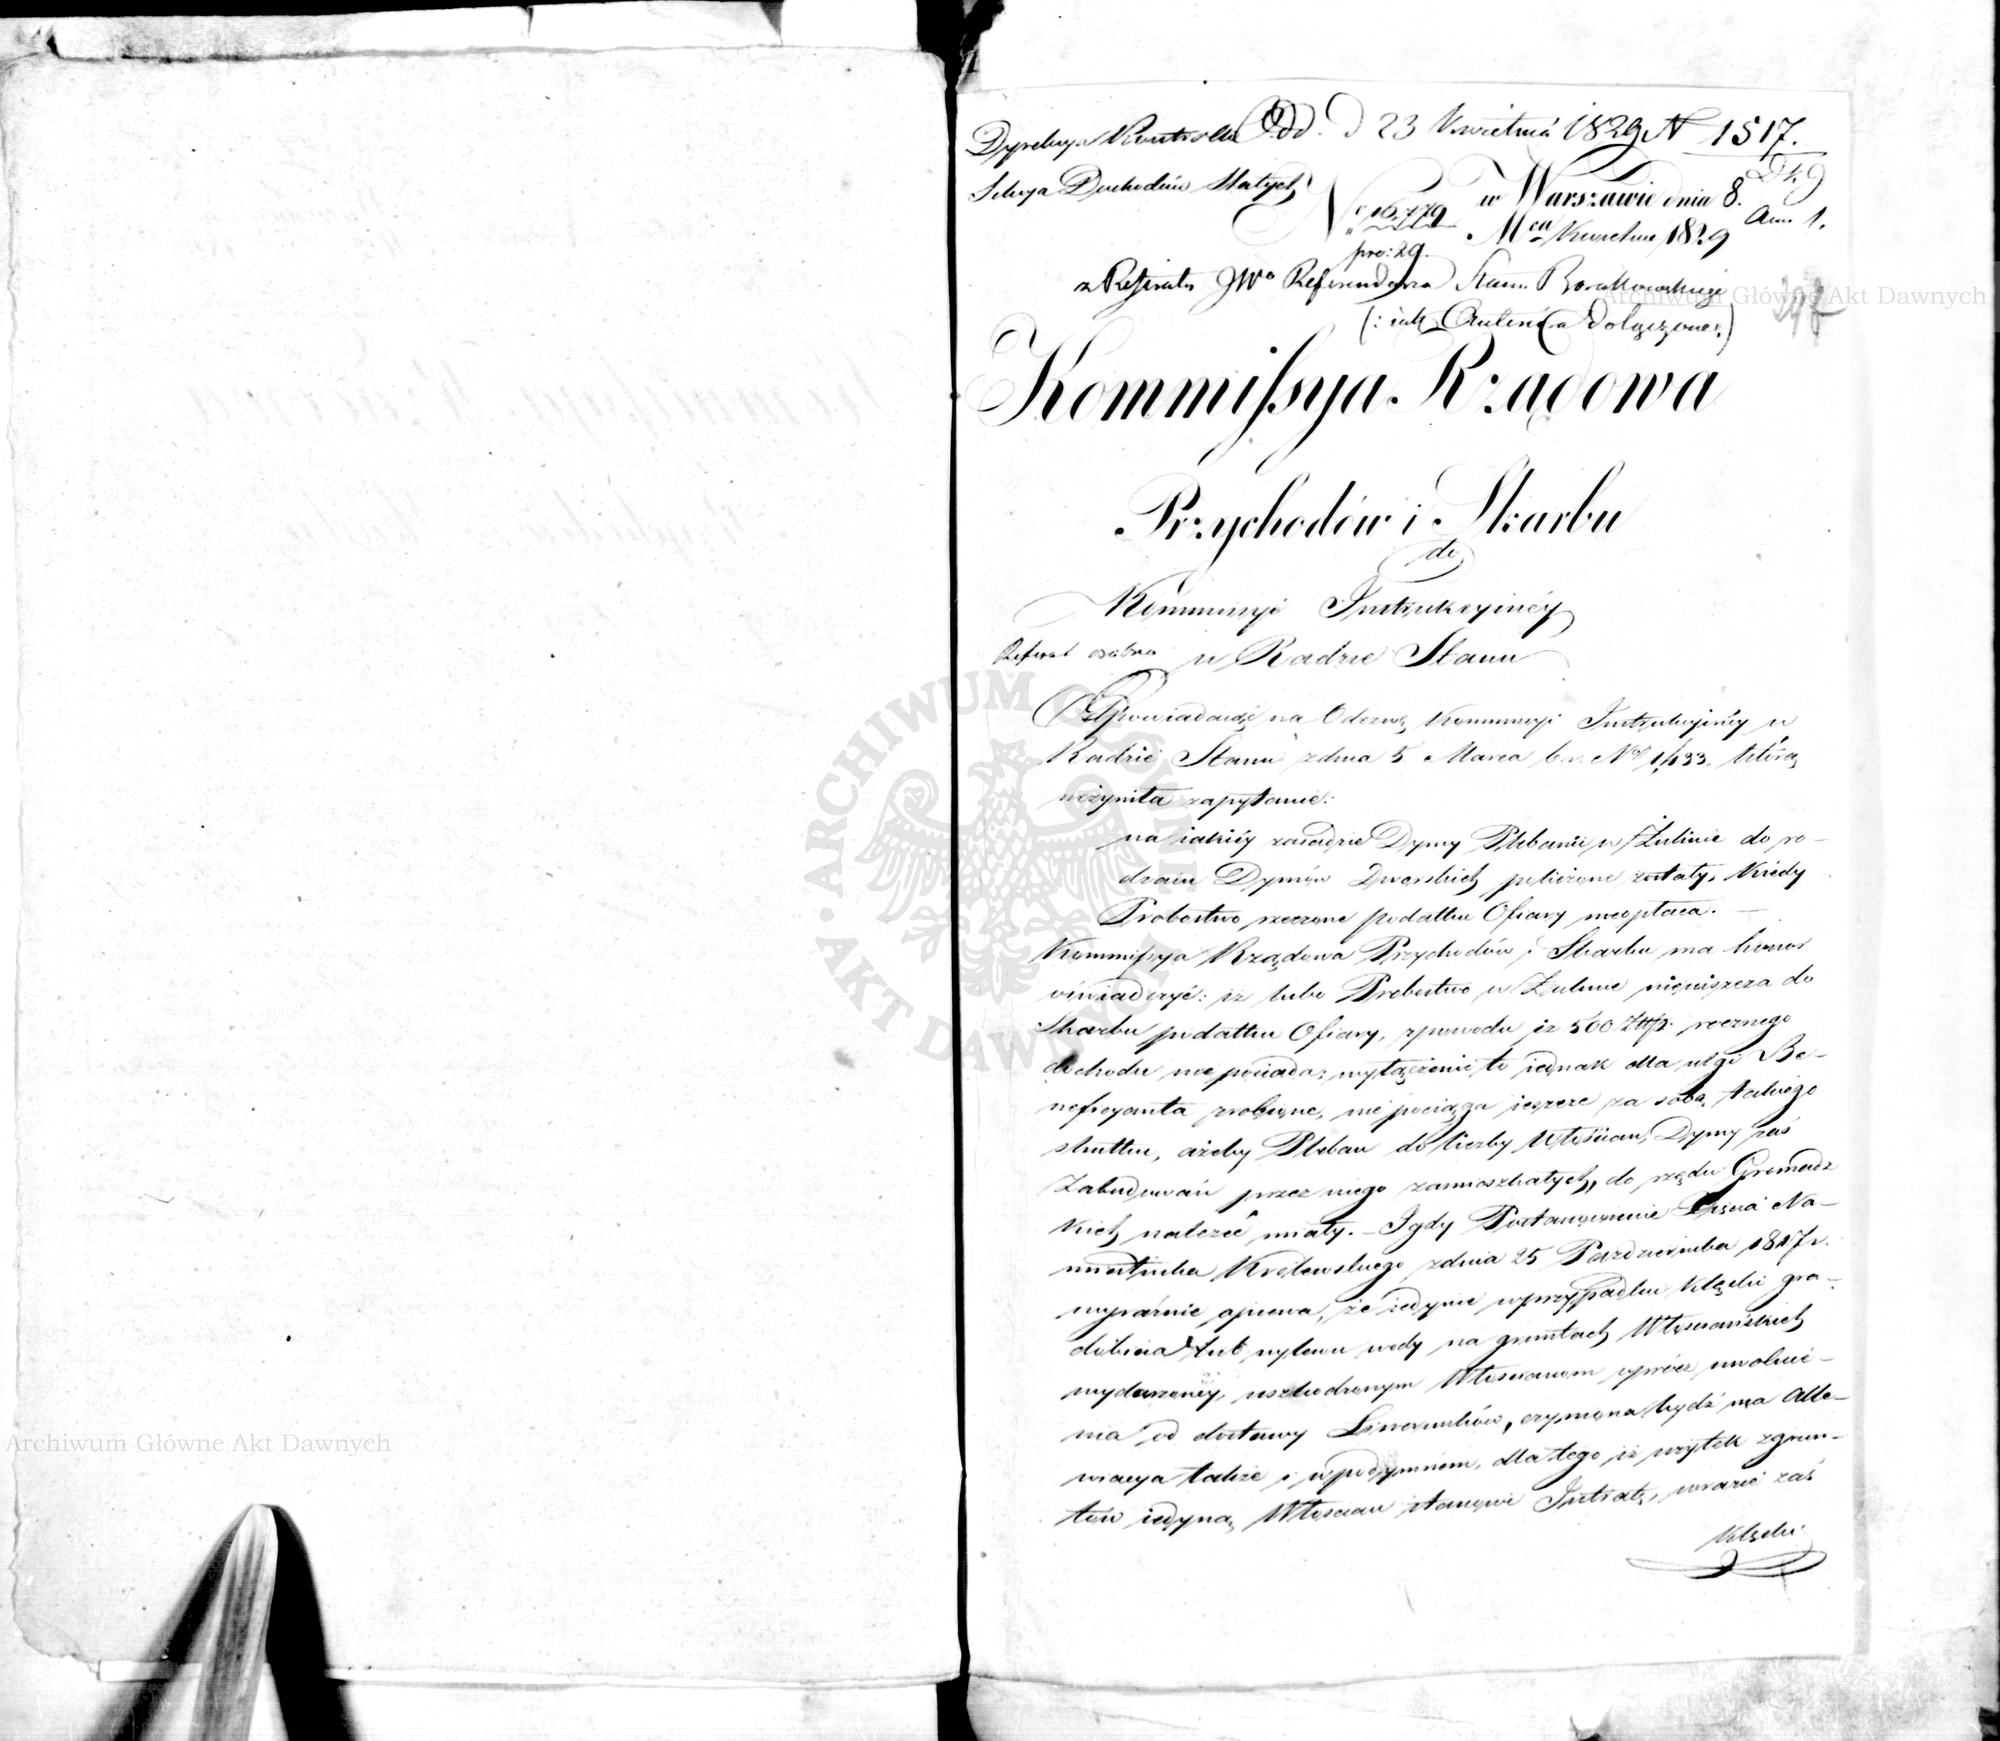 Dyrekcya Kontrolla Odd. D 23 Kwietnia 1829 N 1517.
Sekcya Dochodów Stałych
D K 9
Ann. 1.
No 16,779 w Warszawie dnia 8.
pro: 29. Mca Kwietnia 1829
z Referatu JWo Referendarza Stanu Borakowskiego
(: iak dołączone :)
Kommissya Rządowa
Przychodów i Skarbu
do
Kommissyi Instrukcyinéy
Referat osobna w Radzie Stanu
Odpowiadaiąc na Odezwę Kommissyi Instrukcyinéy w
Radzie Stanu z dnia 5 Marca b.r. No 1,133, którą
uczyniła zapytanie:
na iakiéy zasadzie Dymy Plebanii w Żulinie do ro-
dzaiu Dymów Dworskich policzone zostały, kiedy
Probostwo rzeczone podatku Ofiary nieopłaca. —
Kommissya Rządowa Przychodów i Skarbu ma honor
oświadczyć: iż lubo Probostwo w Żulinie nieuiszcza do
Skarbu podatku Ofiary, z powodu iż 500 Złłp. rocznego
dochodu nie posiada; wyłączenie to iednak dla ulgi Be-
neficyanta zrobione, nie pociąga ieszcze za sobą takiego
skutku, ażeby Pleban do liczby Włościan, Dymy zaś
Zabudowań przez niego zamieszkałych, do rzędu Gromadz
kich należeć miały. — I gdy Postanowienie Xięcia Na-
miestnika Królewskiego z dnia 25 Października 1817 r.
wyraźnie opiewa, że iedynie w przypadku klęski gra-
dobicia lub wylewu wody na gruntach Włościańskich
wydarzonéy, uszkodzonym Włościanom oprócz uwolnie-
nia od dostawy Liwerunków, czyniona bydź ma Alle-
wiacya także i w podymnem, dla tego iż użytek z grun-
tów iedyną Włościan stanowi Intratę, w razie zaś
klęski
Archiwum Główne Akt Dawnych
Archiwum Główne Akt Dawnych